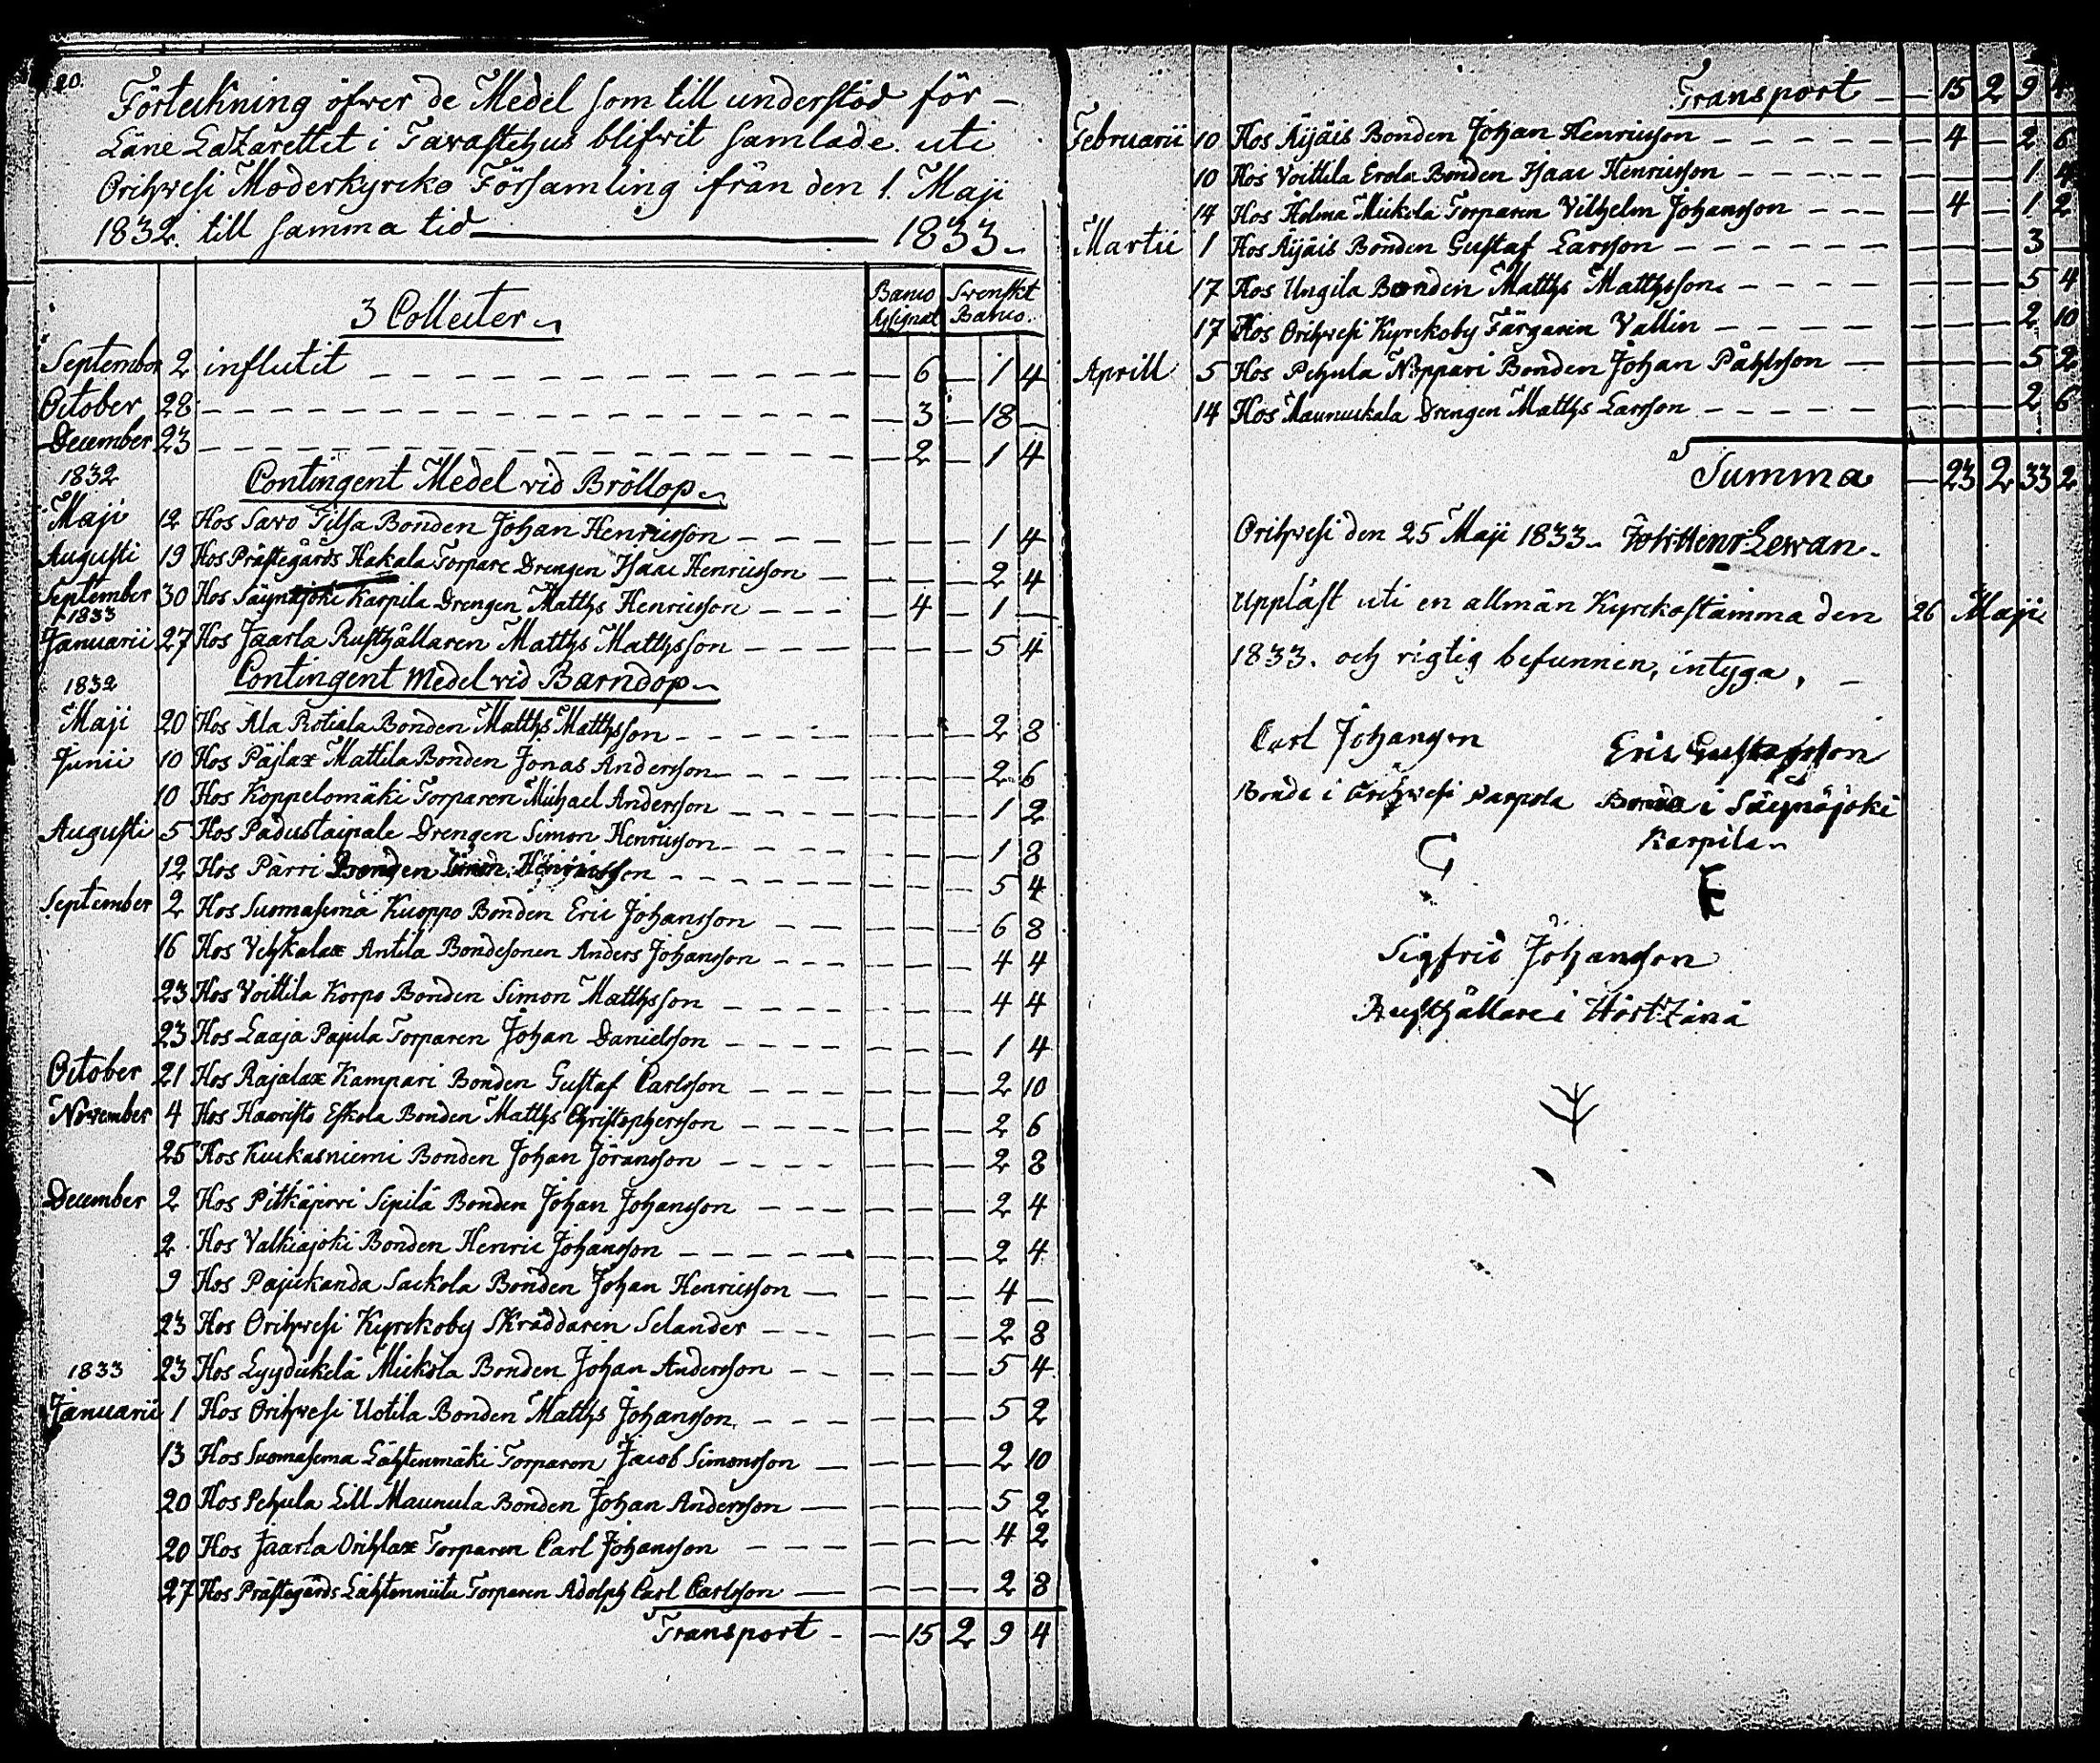 20.
Förteckning öfwer de Medel som till understöd för
Läne Lazarettet i Tavastehus blifvit samlade uti
Orihvesi Moderkyrcko Församling ifrån den 1. Maji
1832. till samma tid 1833
3 Collecter Banco Assignat Svenskt Banco.
September 2 influtit — 6 — 1 4
October 28 — 3 — 18 —
December 23 — 2 — 1 4
1832 Contingent Medel vid Bröllop
Maji 12 Hos Savo Tilsa Bonden Johan Henricsson 1 4
Augusti 19 Hos Prästegårds Hakala Torpare Drengen Isaac Henricsson — — — 2 4
September 30 Hos Säynäjoki Karpila Drengen Matths Henricsson — 4 — 1 —
1833
Januarii 27 Hos Jaarla Rusthållaren Matths Matthsson — — — 5 4
1832 Contingent Medel vid Barndop
Maji 20 Hos Ala Rotiala Bonden Matths Matthsson — — — 2 8
Junii 10 Hos Päjlax Mattila Bonden Jonas Andersson — — — 2 6
10 Hos Koppelomäki Torparen Michael Andersson — — — 1 2
Augusti 5 Hos Padustaipale Drengen Simon Henricsson — — — 1 8
12 Hos Parri Simon Henricsson — — — 5 4
September 2 Hos Suomasema Kuoppo Bonden Eric Johansson — — — 6 8
16 Hos Vehkalax Antila Bondesonen Anders Johansson — — — 4 4
23 Hos Voittila Korpo Bonden Simon Matthsson — — — 4 4
23 Hos Laaja Papula Torparen Johan Danielsson — — — 1 4
October 21 Hos Rajalax Kampari Bonden Gustaf Carlsson — — — 2 10
November 4 Hos Haavisto Eskola Bonden Matths Christophersson — — — 2 6
25 Hos Kuckasniemi Bonden Johan Jöransson — — — 2 8
December 2 Hos Pitkäjärvi Sipilä Bonden Johan Johansson — — — 2 4
2 Hos Valkiajoki Bonden Henric Johansson — — — 2 4
9 Hos Pajukanda Sackola Bonden Johan Henricsson — — — 4 —
23 Hos Orihvesi Kyrckoby Skräddaren Selander — — — 2 8
1833 23 Hos Lyydickelä Mickola Bonden Johan Andersson — — — 5 4
Januarii 1 Hos Orihvesi Uotila Bonden Matths Johansson — — — 5 2
13 Hos Suomasema Lähtenmäki Torparen Jacob Simonsson — — — 2 10
20 Hos Pehula Lill Maunula Bonden Johan Andersson — — — 5 2
20 Hos Jaarla Orihlax Torparen Carl Johansson — — — 4 2
27 Hos Prästegårds Lähtenniitu Torparen Adolph Carl Carlsson — — — 2 8
Transport — 15 2 9 4
Transport — 15 2 9 4
Februarii 10 Hos Äijäis Bonden Johan Henricsson — 4 — 2 6
10 Hos Voittila Erola Bonden Isaac Henricsson — — — 1 4
14 Hos Holma Mickola Torparen Vilhelm Johansson — 4 — 1 2
Martii 1 Hos Äijäis Bonden Gustaf Larsson — — — 3 —
17 Hos Ungila Bonden Matths Matthsson — — — 5 4
17 Hos Orihvesi Kyrckoby Färgaren Vallin — — — 2 10
Aprill 5 Hos Pehula Noppari Bonden Johan Påhlsson — — — 5 2
14 Hos Maunuckala Drengen Matths Larsson — — — 2 6
Summa — 23 2 33 2
Orihvesi den 25 Maji 1833. Joh Henr Lewan.
Uppläst uti en allmän Kyrckostämma den 26 Maji
1833. och rigtig befunnen, intyga,
Carl Johansson Eric Gustafsson
Bonde i Orihvesi Bonde i Säynäjoki
Karpila
C E
Sigfrid Johansson
Rusthållare i